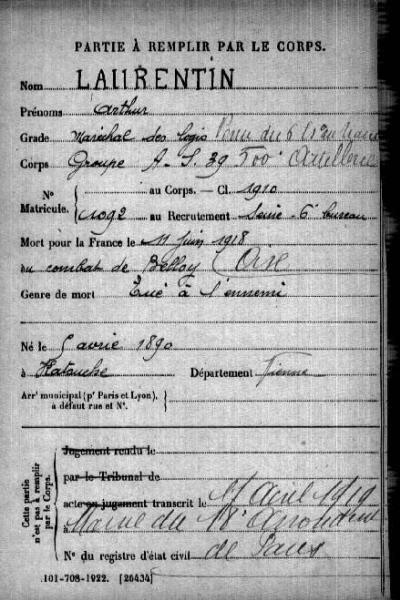 PARTIE À REMPLIR PAR LE CORPS.
Nom LAURENTIN
Prénoms Arthur
Grade Maréchal des logis Venu du 6e
Corps Groupe A. S. 39 500e Artillerie
N° Matricule. au Corps. — Cl. 1910
1092 au Recrutement Seine - 6e bureau
Mort pour la France le 11 juin 1918
au combat de Belloy (Oise
Genre de mort Tué à l'ennemi
Né le 5 avril 1890
à Département Vienne
Arrt municipal (pr Paris et Lyon), à défaut rue et N°.
Cette partie n'est pas à remplir par le Corps.
Jugement rendu le
par le Tribunal de
acte ou jugement transcrit le 17 Avril 1919
à Mairie du 18e Arrondt
N° du registre d'état civil de Paris
101-708-1922. [26434]